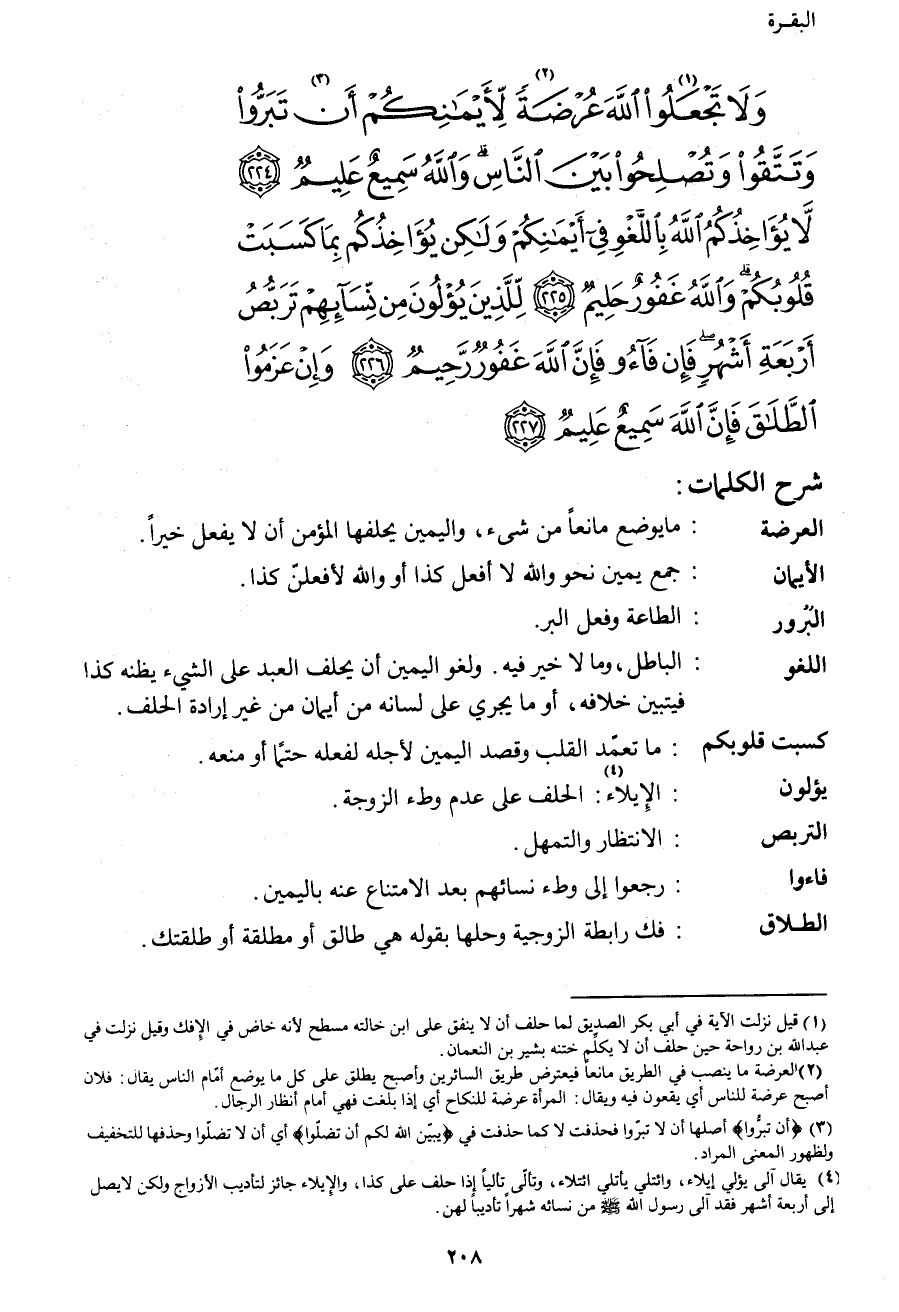 البقـرة
وَلَا تَجْعَلُوا۟ ٱللَّهَ عُرْضَةً لِّأَيْمَـٰنِكُمْ أَن تَبَرُّوا۟
(١) (٢) (٣)
وَتَتَّقُوا۟ وَتُصْلِحُوا۟ بَيْنَ ٱلنَّاسِ ۗ وَٱللَّهُ سَمِيعٌ عَلِيمٌ ٢٢٤
لَّا يُؤَاخِذُكُمُ ٱللَّهُ بِٱللَّغْوِ فِىٓ أَيْمَـٰنِكُمْ وَلَـٰكِن يُؤَاخِذُكُم بِمَا كَسَبَتْ
قُلُوبُكُمْ ۗ وَٱللَّهُ غَفُورٌ حَلِيمٌ ٢٢٥ لِّلَّذِينَ يُؤْلُونَ مِن نِّسَآئِهِمْ تَرَبُّصُ
أَرْبَعَةِ أَشْهُرٍ ۖ فَإِن فَآءُو فَإِنَّ ٱللَّهَ غَفُورٌ رَّحِيمٌ ٢٢٦ وَإِنْ عَزَمُوا۟
ٱلطَّلَـٰقَ فَإِنَّ ٱللَّهَ سَمِيعٌ عَلِيمٌ ٢٢٧
شرح الكلمات :
العرضة : مايوضع مانعاً من شيء، واليمين يحلفها المؤمن أن لا يفعل خيراً.
الأيمان : جمع يمين نحو والله لا أفعل كذا أو والله لأفعلنّ كذا.
البُرور : الطاعة وفعل البر.
اللغو : الباطل، وما لا خير فيه. ولغو اليمين أن يحلف العبد على الشيء يظنه كذا
فيتبين خلافه، أو ما يجري على لسانه من أيمان من غير إرادة الحلف.
كسبت قلوبكم : ما تعمّد القلب وقصد اليمين لأجله لفعله حتمًا أو منعه.
يؤلون : الإيلاء(٤): الحلف على عدم وطء الزوجة.
التربص : الانتظار والتمهل.
فاءوا : رجعوا إلى وطء نسائهم بعد الامتناع عنه باليمين.
الطـلاق : فك رابطة الزوجية وحلها بقوله هي طالق أو مطلقة أو طلقتك.
(١) قيل نزلت الآية في أبي بكر الصديق لما حلف أن لا ينفق على ابن خالته مسطح لأنه خاض في الإفك وقيل نزلت في
عبدالله بن رواحة حين حلف أن لا يكلّم ختنه بشير بن النعمان.
(٢)العرضة ما ينصب في الطريق مانعاً فيعترض طريق السائرين وأصبح يطلق على كل ما يوضع أمّام الناس يقال: فلان
أصبح عرضة للناس أي يقعون فيه ويقال: المرأة عرضة للنكاح أي إذا بلغت فهي أمام أنظار الرجال.
(٣) ﴿أن تبرُّوا﴾ أصلها أن لا تبرّوا فحذفت لا كما حذفت في ﴿يبيّن الله لكم أن تضلّوا﴾ أي أن لا تضلّوا وحذفها للتخفيف
ولظهور المعنى المراد.
(٤) يقال آلى يؤلي إيلاء، وائتلي يأتلي ائتلاء، وتألّى تألياً إذا حلف على كذا، والإيلاء جائز لتأديب الأزواج ولكن لايصل
إلى أربعة أشهر فقد آلى رسول الله ﷺ من نسائه شهراً تأديباً لهن.
٢٠٨